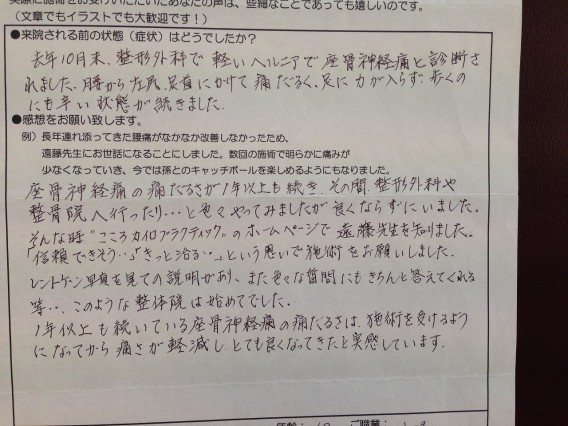 実際に施術をお受けいただいたあなたの声は、些細なことであっても嬉しいのです。
（文章でもイラストでも大歓迎です！）
●来院される前の状態（症状）はどうでしたか？
去年10月末、整形外科で軽いヘルニアで座骨神経痛と診断さ
れました。腰から左尻、足首にかけて痛だるく、足に力が入らず、歩くの
にも辛い状態が続きました。
●感想をお願い致します。
例）長年連れ添ってきた腰痛がなかなか改善しなかったため、
遠藤先生にお世話になることにしました。数回の施術で明らかに痛みが
少なくなっていき、今では孫とのキャッチボールを楽しめるようにもなりました。
座骨神経痛の痛だるさが1年以上も続き、その間、整形外科や
整骨院へ行ったり…と色々やってみましたが良くならずにいました。
そんな時"こころカイロプラクティック"のホームページで遠藤先生を知りました。
「信頼できそう…」「きっと治る…」という思いで施術をお願いしました。
レントゲン写真を見ての説明があり、また色々な質問にもきちんと答えてくれる
等…、このような整体院は始めてでした。
1年以上も続いている座骨神経痛の痛だるさは、施術を受けるよう
になってから痛さが軽減しとても良くなってきたと実感しています。
年齢： ご職業：